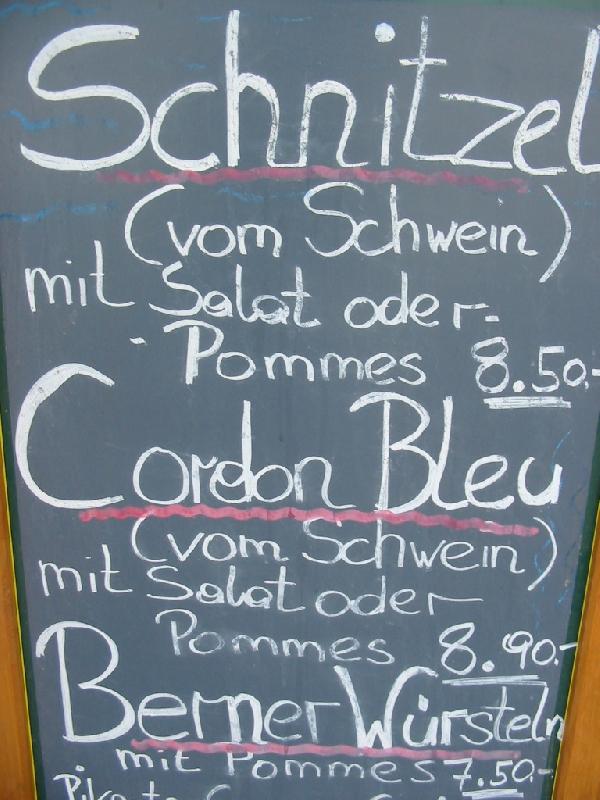 Schnitzel
(vom Schwein)
mit Salat oder
Pommes 8.50.-
Cordon Bleu
(vom Schwein)
mit Salat oder
Pommes 8.90.-
Berner Würsteln
mit Pommes 7.50.-